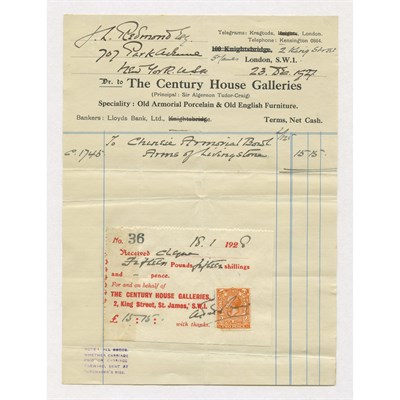 J. L. Redmond Esq.
707 Park Avenue
New York USA
Telegrams: Kragtuda, London.
Telephone: Kensington 5914.
100 Knightsbridge, 2 King Street
St James' London, S.W.1.
23. Dec. 1927
Dr. to The Century House Galleries
(Principal: Sir Algernon Tudor-Craig)
Speciality: Old Armorial Porcelain & Old English Furniture.
Bankers: Lloyds Bank, Ltd., Knightsbridge.
Terms, Net Cash.
To Chinese Armorial Bowl
c. 1745 Arms of Livingstone 15 15
No. 36
18.1 1928
Received cheque
Fifteen Pounds fifteen shillings
and - pence.
For and on behalf of
THE CENTURY HOUSE GALLERIES,
2, King Street, St. James,' S.W.1.
£ 15-15-
with thanks.